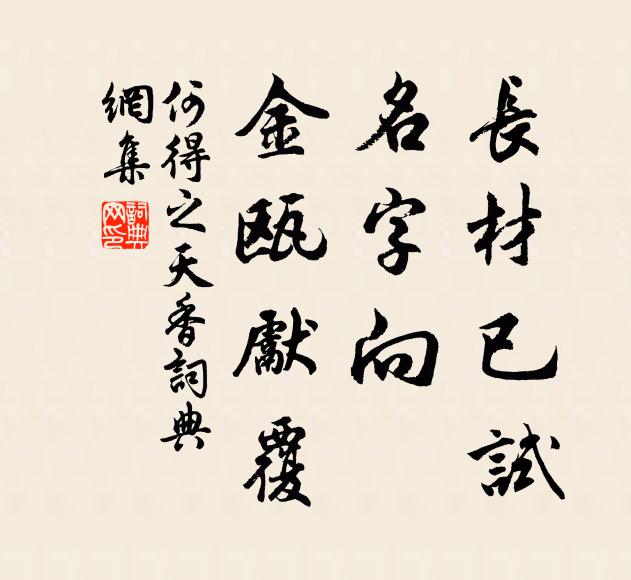 長材已試
名字向
金甌獻覆
何得之天香詞典
網集
詞典
网印